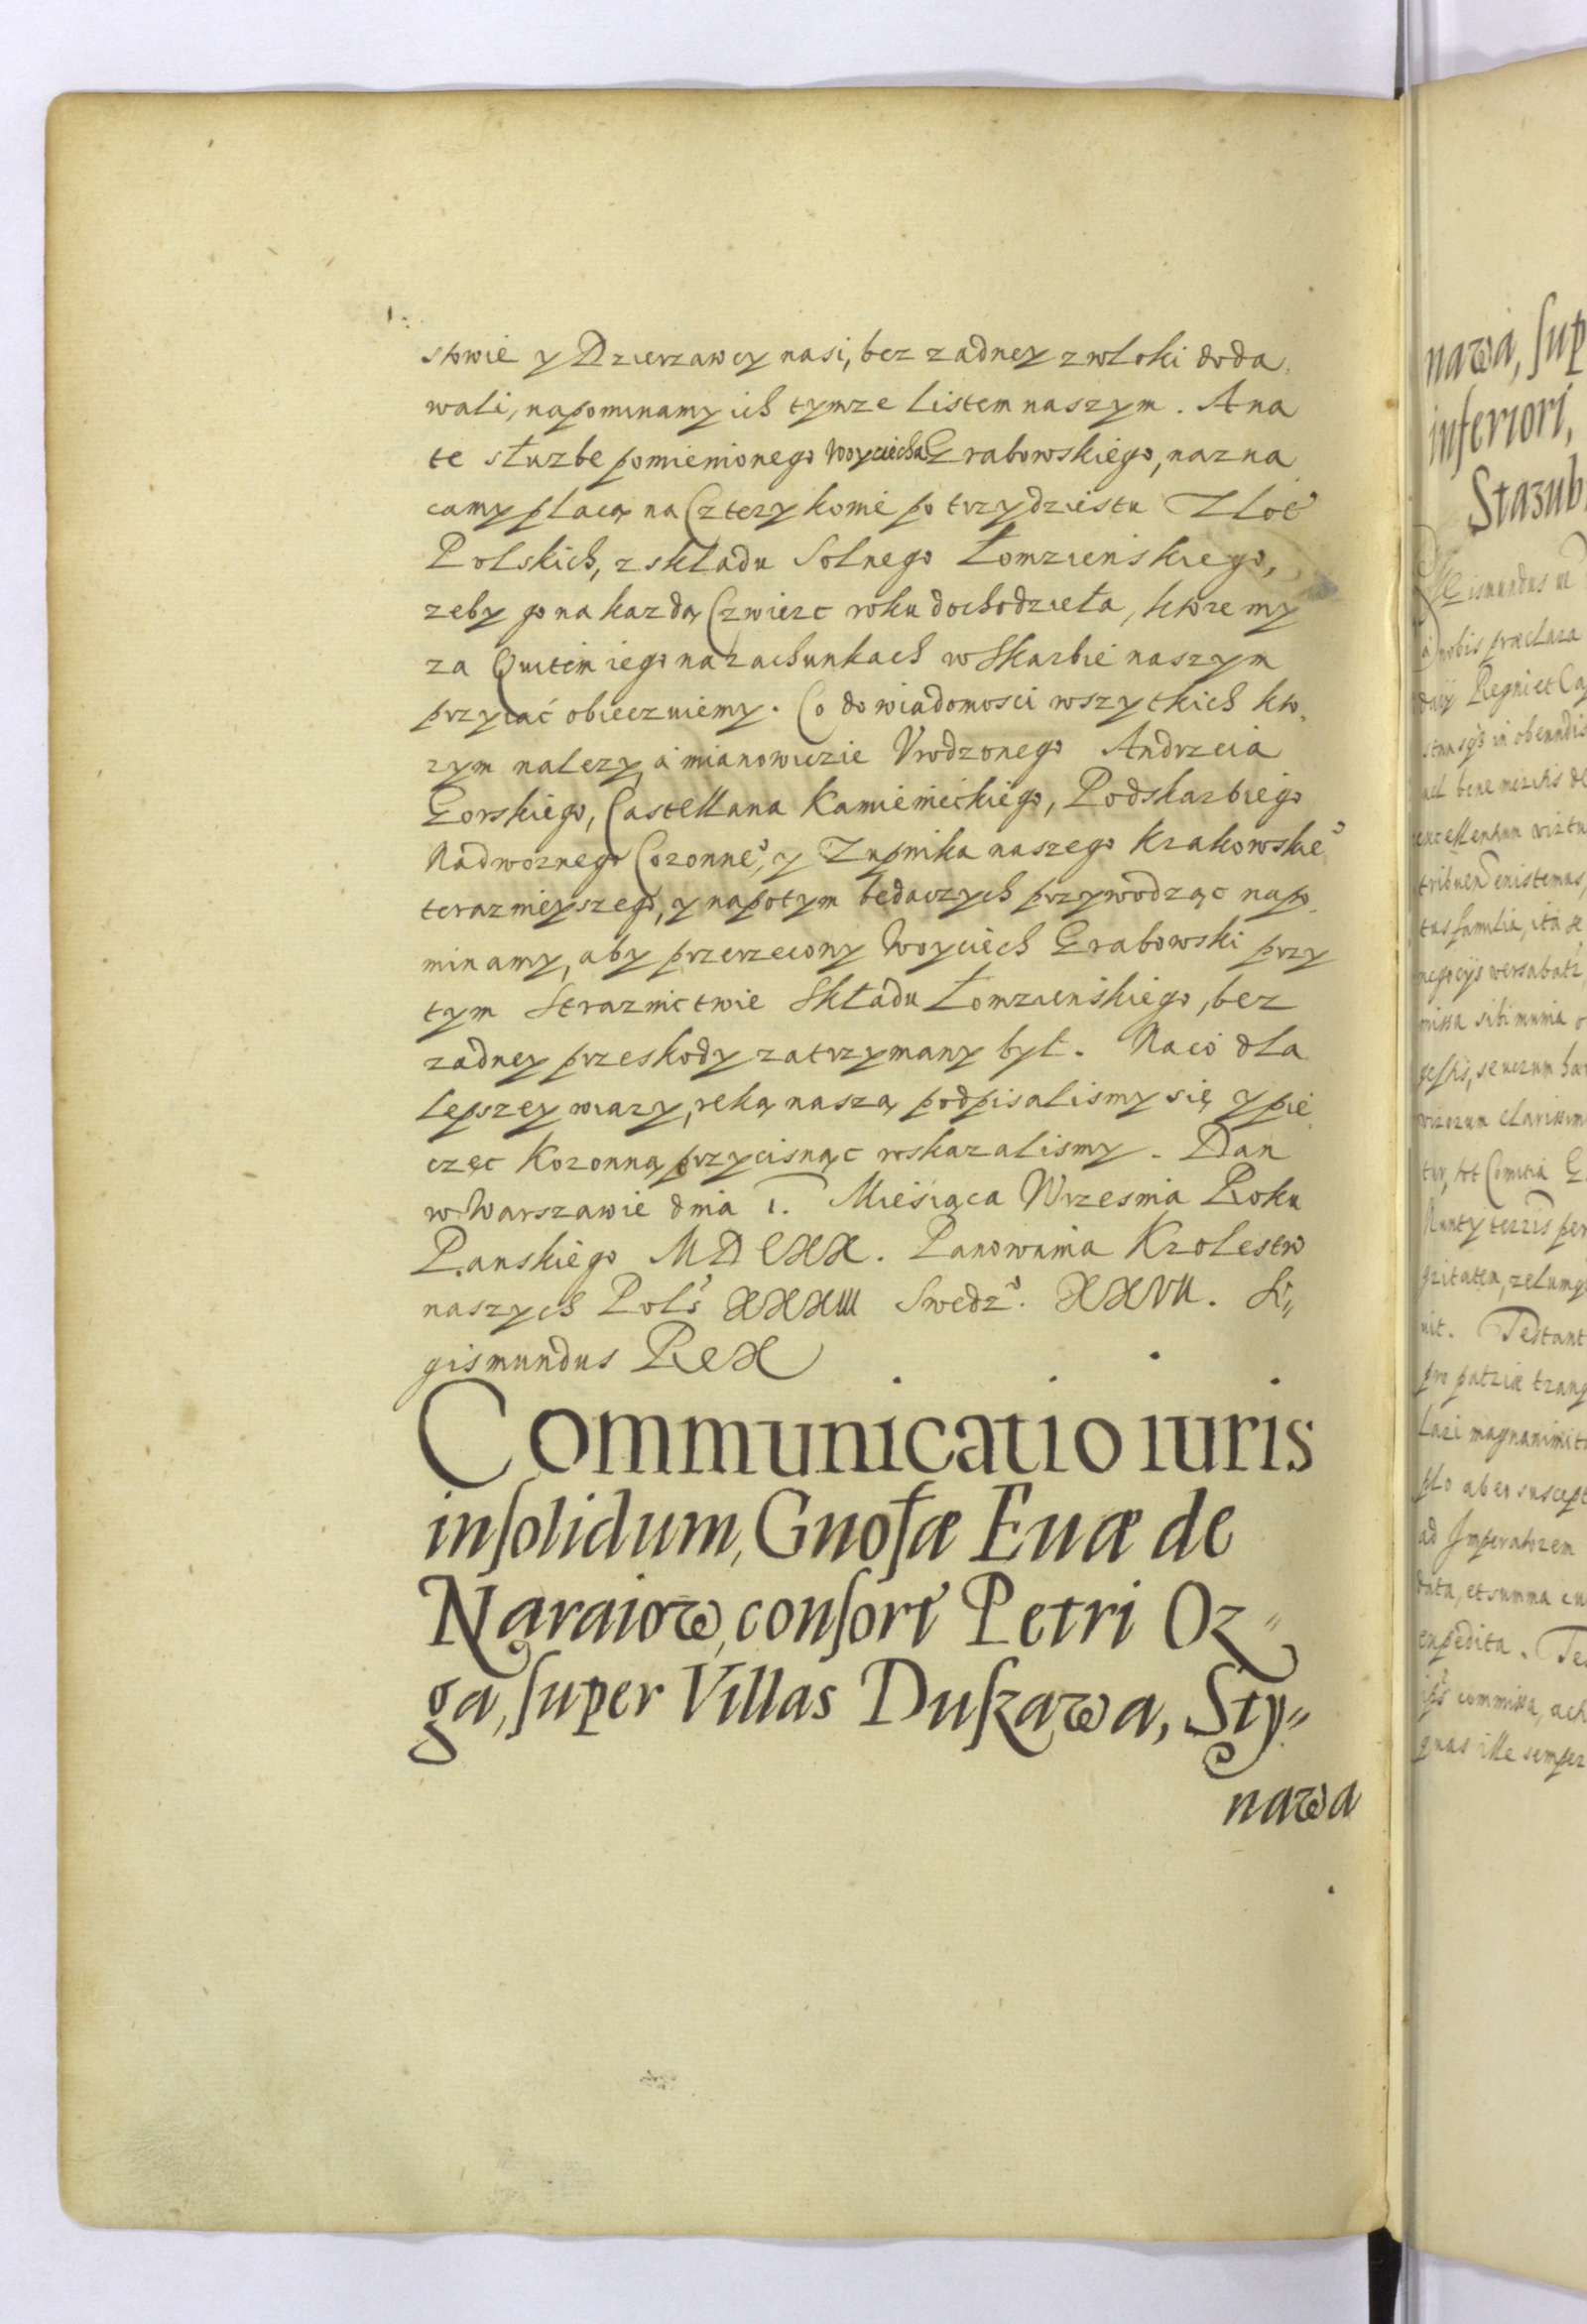 stowie y Dzierzawcy nasi, bez zadney zwłoki doda,
wali, napominamy ich tymze listem naszym. Ana
te słuzbe pomienionego Woyciecha Grabowskiego, nazna
camy płacą na Cztery konie po trzydziestu Złot
Polskich, z składu Solnego Łomzienskiego,
zeby go na kazdą Czwierc roku dochodzieła, ktore my
za Quitem iego na rachunkach w Skarbie naszym
przyiać obiecuiemy. Co do wiadomosci wszytkich kto,
rym nalezy, a mianowicie Vrodzonego Andrzeia
Gorskiego, Castellana Kamienieckiego, Podskarbiego
Nadwornego Coronne, y Zupnika naszego Krakowskie
terazniejszego, y napotym bedaczych przywodząc napo,
minamy, aby przerzeczony Woyciech Grabowski przy
tym Straznictwie Składu Łomzienskiego, bez
zadney przeskody zatrzymany był. Naco dla
lepszey wiary, reką naszą podpisalismy się y pie
częc Koronną przycisnąc wskazalismy. Dan
w Warszawie dnia 1. Miesiąca Wrzesnia Roku
Panskiego MDCXX. Panowania Krolestw
naszych Pols XXXIII Swedz. XXVII. Si„
gismundus Rex
Communicatio iuris
insolidum, Gnosæ Euæ de
Naraiow, consort Petri Oz„
ga, super Villas Duszawa, Sty„
nawa
nawa, sup
inferiori,
Stazub
à nobis præclara
Regni et Ca
bene meritis de
excellentum virtu
tribuend enistemus,
tus familia, ita se
negocijs versabatz
missa sibi munia o
gessis,
virorum clarissim
tur, tot Comitia
Nunty terris per
zelumq
nit. Testant
pro patriæ tranq
magnanimit
ab eo suscept
ad Imperatorem
data, et summa cu
expedita. Te
commissa, ach
quas ille semper